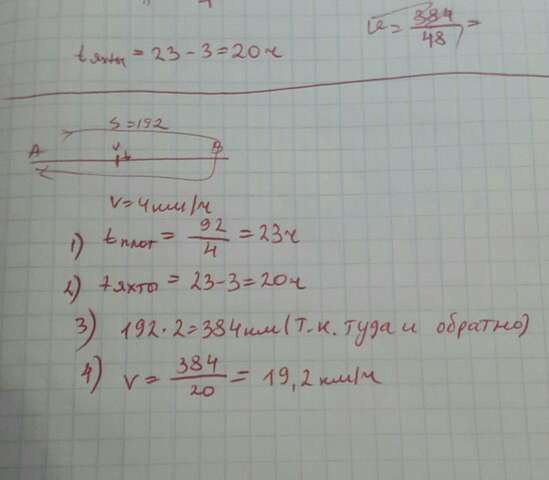 t яхты = 23 - 3 = 20ч
v = 384/48 =
S = 192
A B
V = 4 км/ч
1) t плот = 92/4 = 23ч
2) t яхты = 23 - 3 = 20ч
3) 192 · 2 = 384 км (т.к. туда и обратно)
4) V = 384/20 = 19,2 км/ч